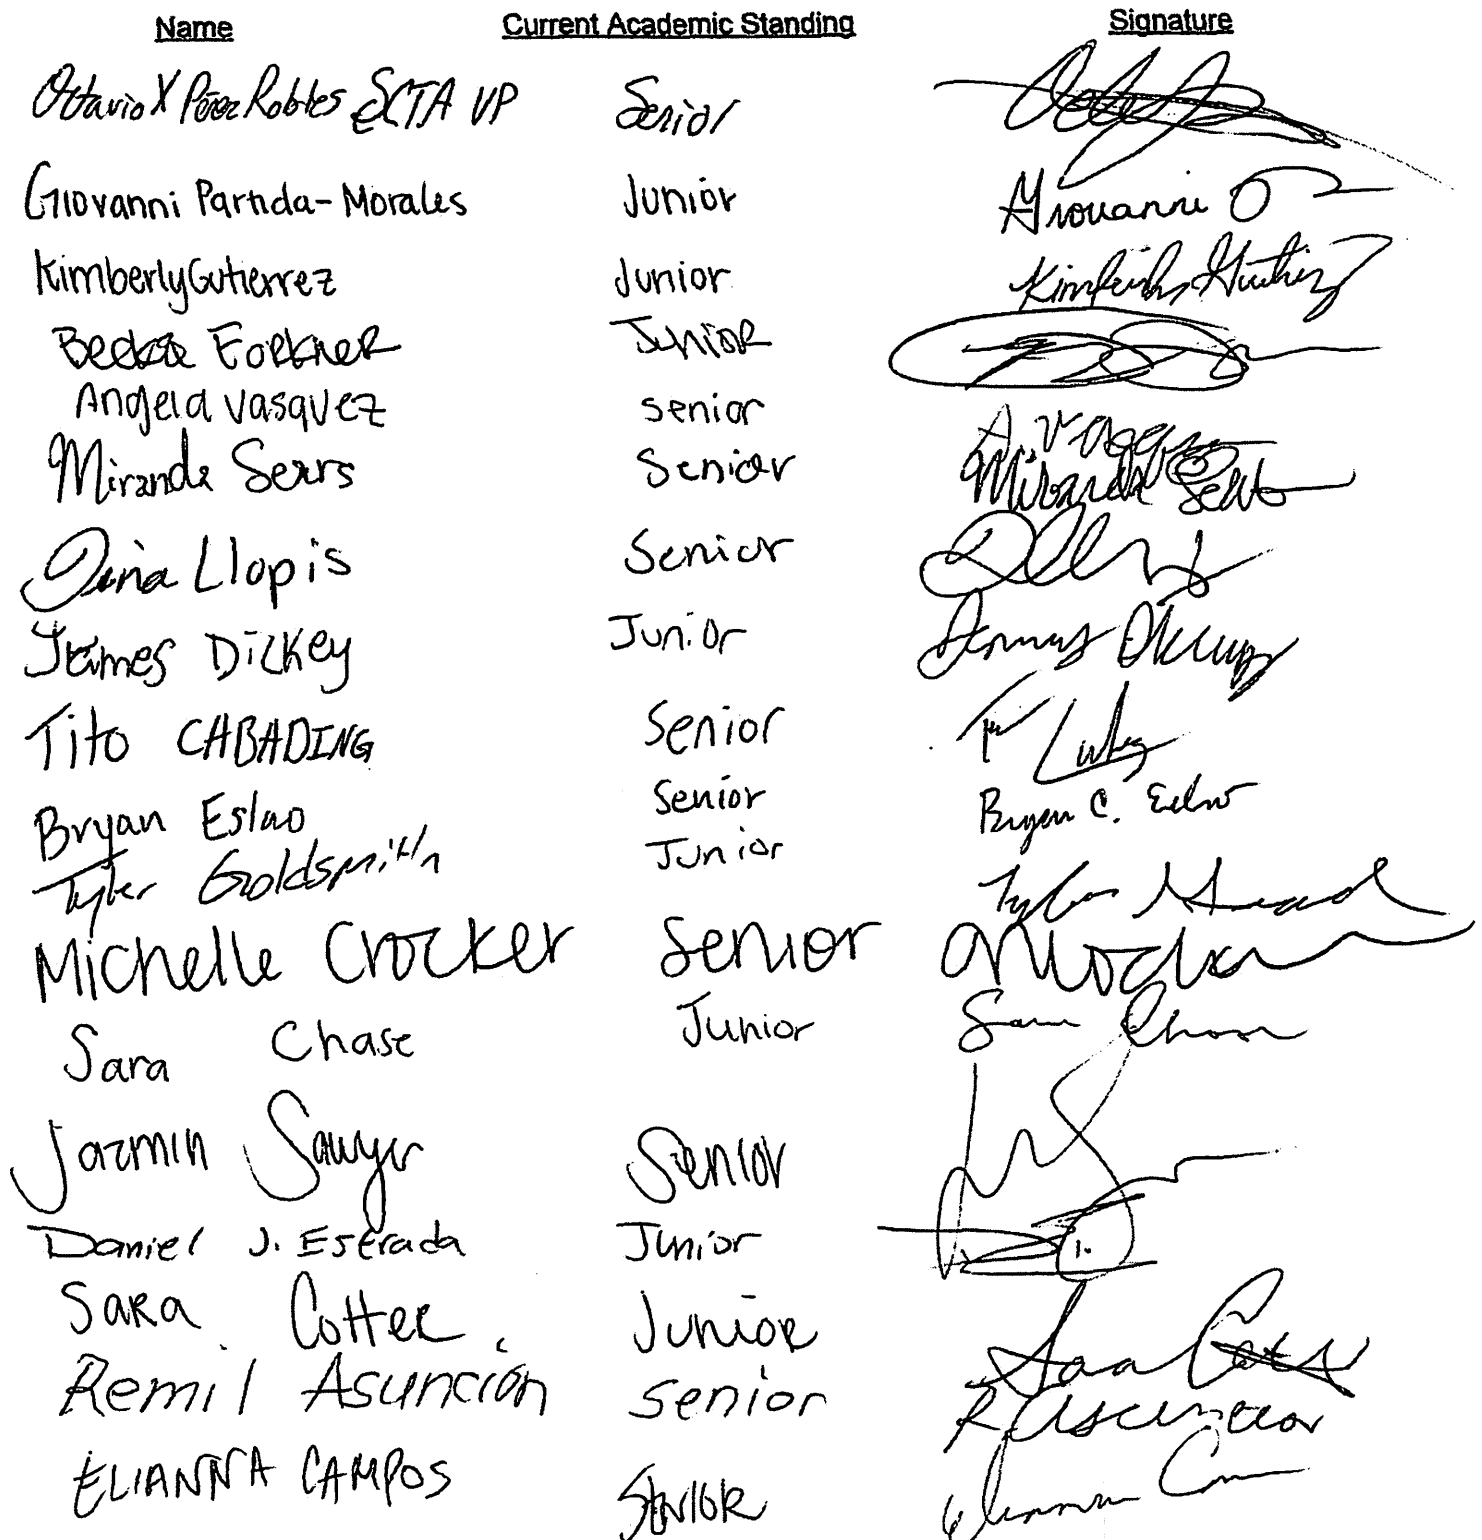 Name Current Academic Standing Signature
Octavio X Pérez Robles SCTA VP Senior
Giovanni Partida-Morales Junior Giovanni
Kimberly Gutierrez Junior Kimberly Gutierrez
Forkner Junior
Angela Vasquez Senior
Miranda Sears Senior Miranda Sears
Dina Llopis Senior
James Dickey Junior
Tito CABADING Senior
Bryan Eslao Senior Bryan C. Eslao
Tyler Goldsmith Junior Tyler
Michelle Crocker Senior
Sara Chase Junior Sara Chase
Jazmin Sawyer Senior
Daniel J. Estrada Junior
SARA Cotter Junior Sara
Remil Asunción Senior R Asuncion
ELIANNA CAMPOS SENIOR